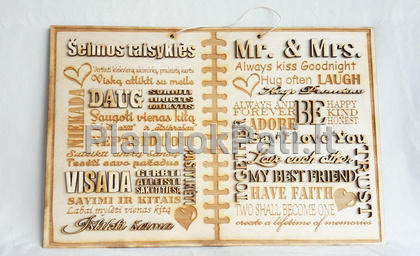 Šeimos taisyklės
Vertinti kiekvieną akimirką, praleistą kartu
Viską atlikti su meile
NIEKADA
DAUG
Saugoti vienas kitą
Suteikti antrą šansą
Tesėti savo pažadus
VISADA
GERBTI
SAVIMI IR KITAIS
Labai mylėti vienas kitą
Mr. & Mrs.
Always kiss Goodnight
Hug often LAUGH
ALWAYS AND
FOREVER
ADORE
BE
HAPPY
KIND
HONEST
TOGETHER
I Love You
Love each other
MY BEST FRIEND
HAVE FAITH
TWO SHALL BECOME ONE
create a lifetime of memories
TRUST
Planuoki Pati.lt